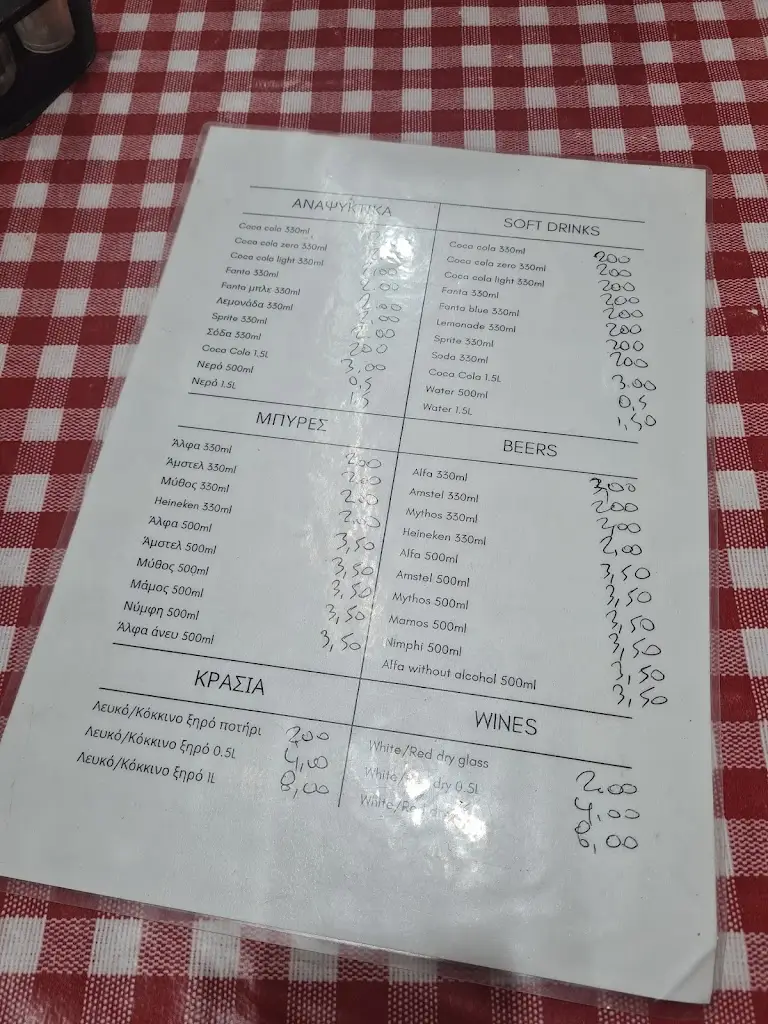 ΑΝΑΨΥΚΤΙΚΑ
Coca cola 330ml
Coca cola zero 330ml
Coca cola light 330ml
Fanta 330ml 2.00
Fanta μπλε 330ml 2.00
Λεμονάδα 330ml 2.00
Sprite 330ml 2.00
Σόδα 330ml 200
Coca Cola 1.5L 3,00
Νερό 500ml 0,5
Νερό 1.5L 1,5
SOFT DRINKS
Coca cola 330ml 200
Coca cola zero 330ml 200
Coca cola light 330ml 200
Fanta 330ml 200
Fanta blue 330ml 200
Lemonade 330ml 200
Sprite 330ml 200
Soda 330ml 200
Coca Cola 1.5L 3.00
Water 500ml 0,5
Water 1.5L 1,50
ΜΠΥΡΕΣ
Άλφα 330ml 200
Άμστελ 330ml 200
Μύθος 330ml 200
Heineken 330ml 2.00
Άλφα 500ml 3,50
Άμστελ 500ml 3,50
Μύθος 500ml 3,50
Μάμος 500ml 3,50
Νύμφη 500ml 3,50
Άλφα άνευ 500ml
BEERS
Alfa 330ml 3,00
Amstel 330ml 200
Mythos 330ml 2,00
Heineken 330ml 2,00
Alfa 500ml 3,50
Amstel 500ml 3,50
Mythos 500ml 3,50
Mamos 500ml 3,50
Nimphi 500ml 3,50
Alfa without alcohol 500ml 3,50
ΚΡΑΣΙΑ
Λευκό/Κόκκινο ξηρό ποτήρι 200
Λευκό/Κόκκινο ξηρό 0.5L 4,00
Λευκό/Κόκκινο ξηρό 1L 8,00
WINES
White/Red dry glass 2.00
White/Red dry 0.5L 4,00
White/Red dry 8,00